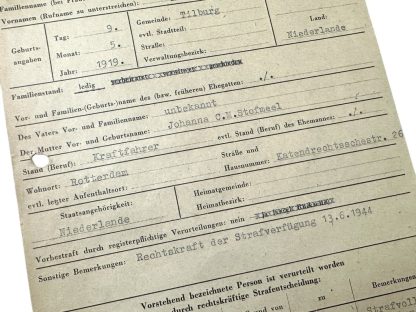 Familienname (bei
Vornamen (Rufname zu unterstreichen):
Geburts-
angaben
Tag: 9.
Monat: 5.
Jahr: 1919.
Gemeinde: Tilburg
evtl. Stadtteil:
Straße:
Verwaltungsbezirk:
Land:
Niederlande
Familienstand: ledig
Vor- und Familien-(Geburts-)name des (bzw. früheren) Ehegatten: ./.
Des Vaters Vor- und Familienname: unbekannt
Der Mutter Vor- und Geburtsname: Johanna C.M.Stofmeel
Stand (Beruf): Kraftfahrer evtl. Stand (Beruf) des Ehemannes: ./.
Wohnort: Rotterdam Straße und
Hausnummer: Katendrechtsechstr. 26
evtl. letzter Aufenthaltsort:
Staatsangehörigkeit:
Niederlande
Heimatgemeinde:
Heimatbezirk:
Vorbestraft durch registerpflichtige Verurteilungen: nein
Sonstige Bemerkungen: Rechtskraft der Strafverfügung 13.6.1944
Vorstehend bezeichnete Person ist verurteilt worden
durch rechtskräftige Strafentscheidung:
und von
zu
Bemerkungen
Strafvoll